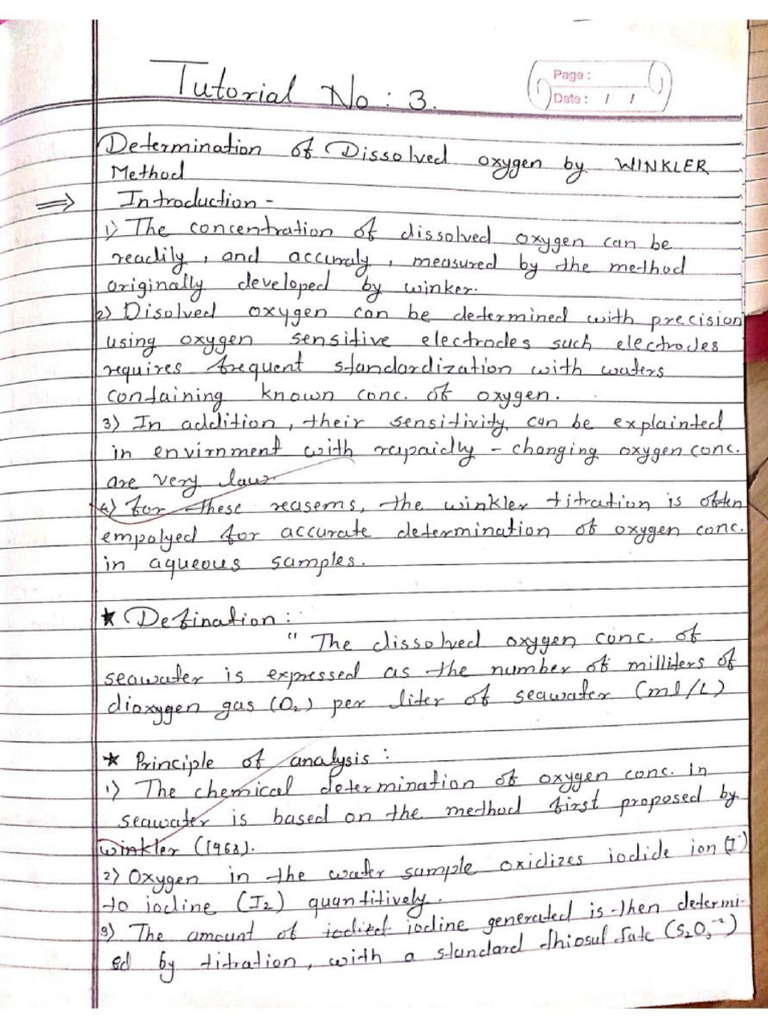 Tutorial No : 3.
Page :
Date : / /
Determination of Dissolved oxygen by WINKLER
Method
⇒ Introduction -
1) The concentration of dissolved oxygen can be
readily, and accuraly, measured by the method
originally developed by winker.
2) Disolved oxygen can be determined with precision
using oxygen sensitive electrodes such electrodes
requires frequent standardization with waters
containing known conc. of oxygen.
3) In addition, their sensitivity can be explainted
in envirnment with rapaidly - changing oxygen conc.
are very law.
4) for these reasems, the winkler titration is often
empolyed for accurate determination of oxygen conc.
in aqueous samples.
★ Defination :
" The dissolved oxygen conc. of
seawater is expressed as the number of milliters of
dioxygen gas (O2) per liter of seawater (ml/L)
★ Principle of analysis :
1) The chemical determination of oxygen conc. in
seawater is based on the method first proposed by
winkler (1968).
2) Oxygen in the water sample oxidizes iodide ion (I-)
to iodine (I2) quantitively.
3) The amount of iodine generated is then determi-
ed by titration, with a standard thiosulfate (S2O3-2)